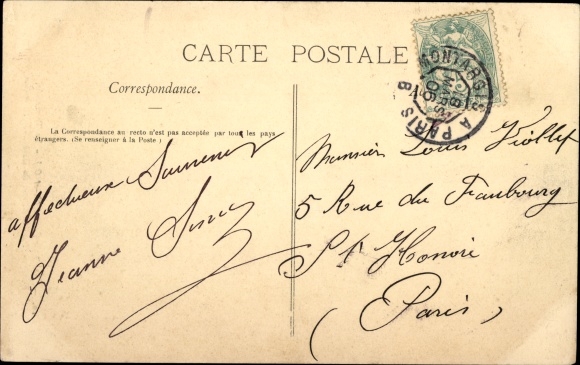 CARTE POSTALE
Correspondance.
La Correspondance au recto n'est pas acceptée par tous les pays
étrangers. (Se renseigner à la Poste)
affectueux Souvenir
Jeanne
Monsieur Louis Viollet
5 Rue du Faubourg
St Honoré
(Paris)
MONTARGIS A PARIS